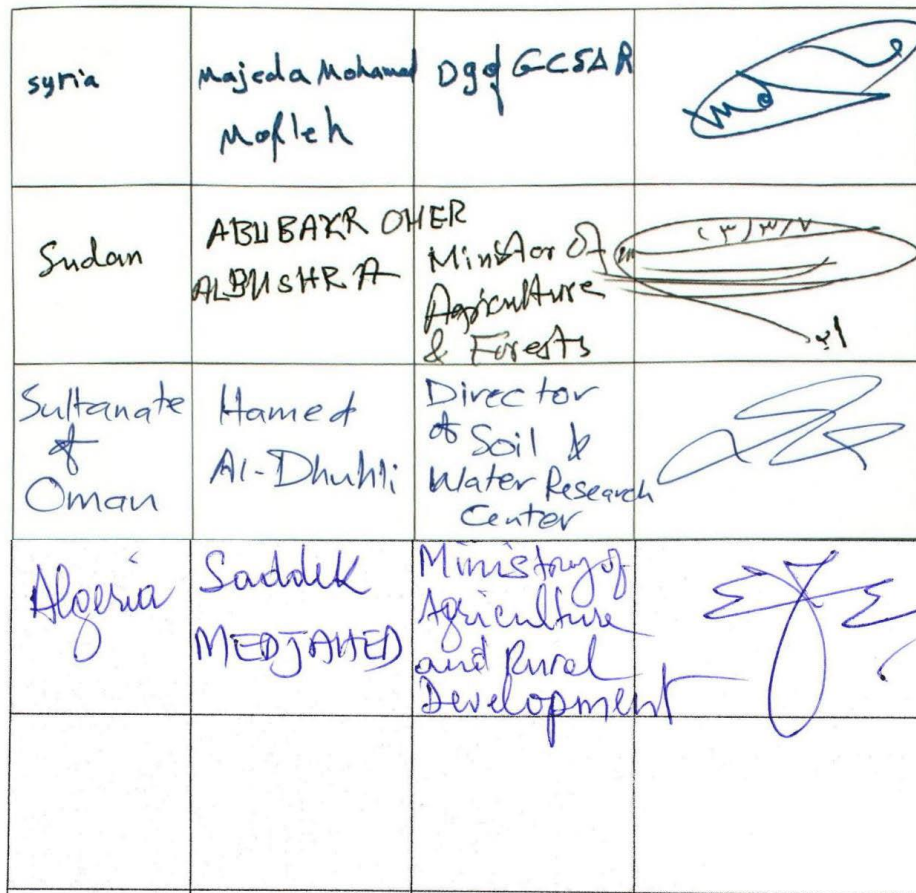 syria
Majeda Mohamad
Mofleh
Dg of GCSAR
Sudan
ABUBAKR OMER
ALBUSHRA
Minstor of
Agriculture
& Forests
Sultanate
of
Oman
Hamed
Al-Dhuhli
Director
of Soil &
Water Research
Center
Algeria
Saddek
MEDJAHED
Ministry of
Agriculture
and Rural
Development